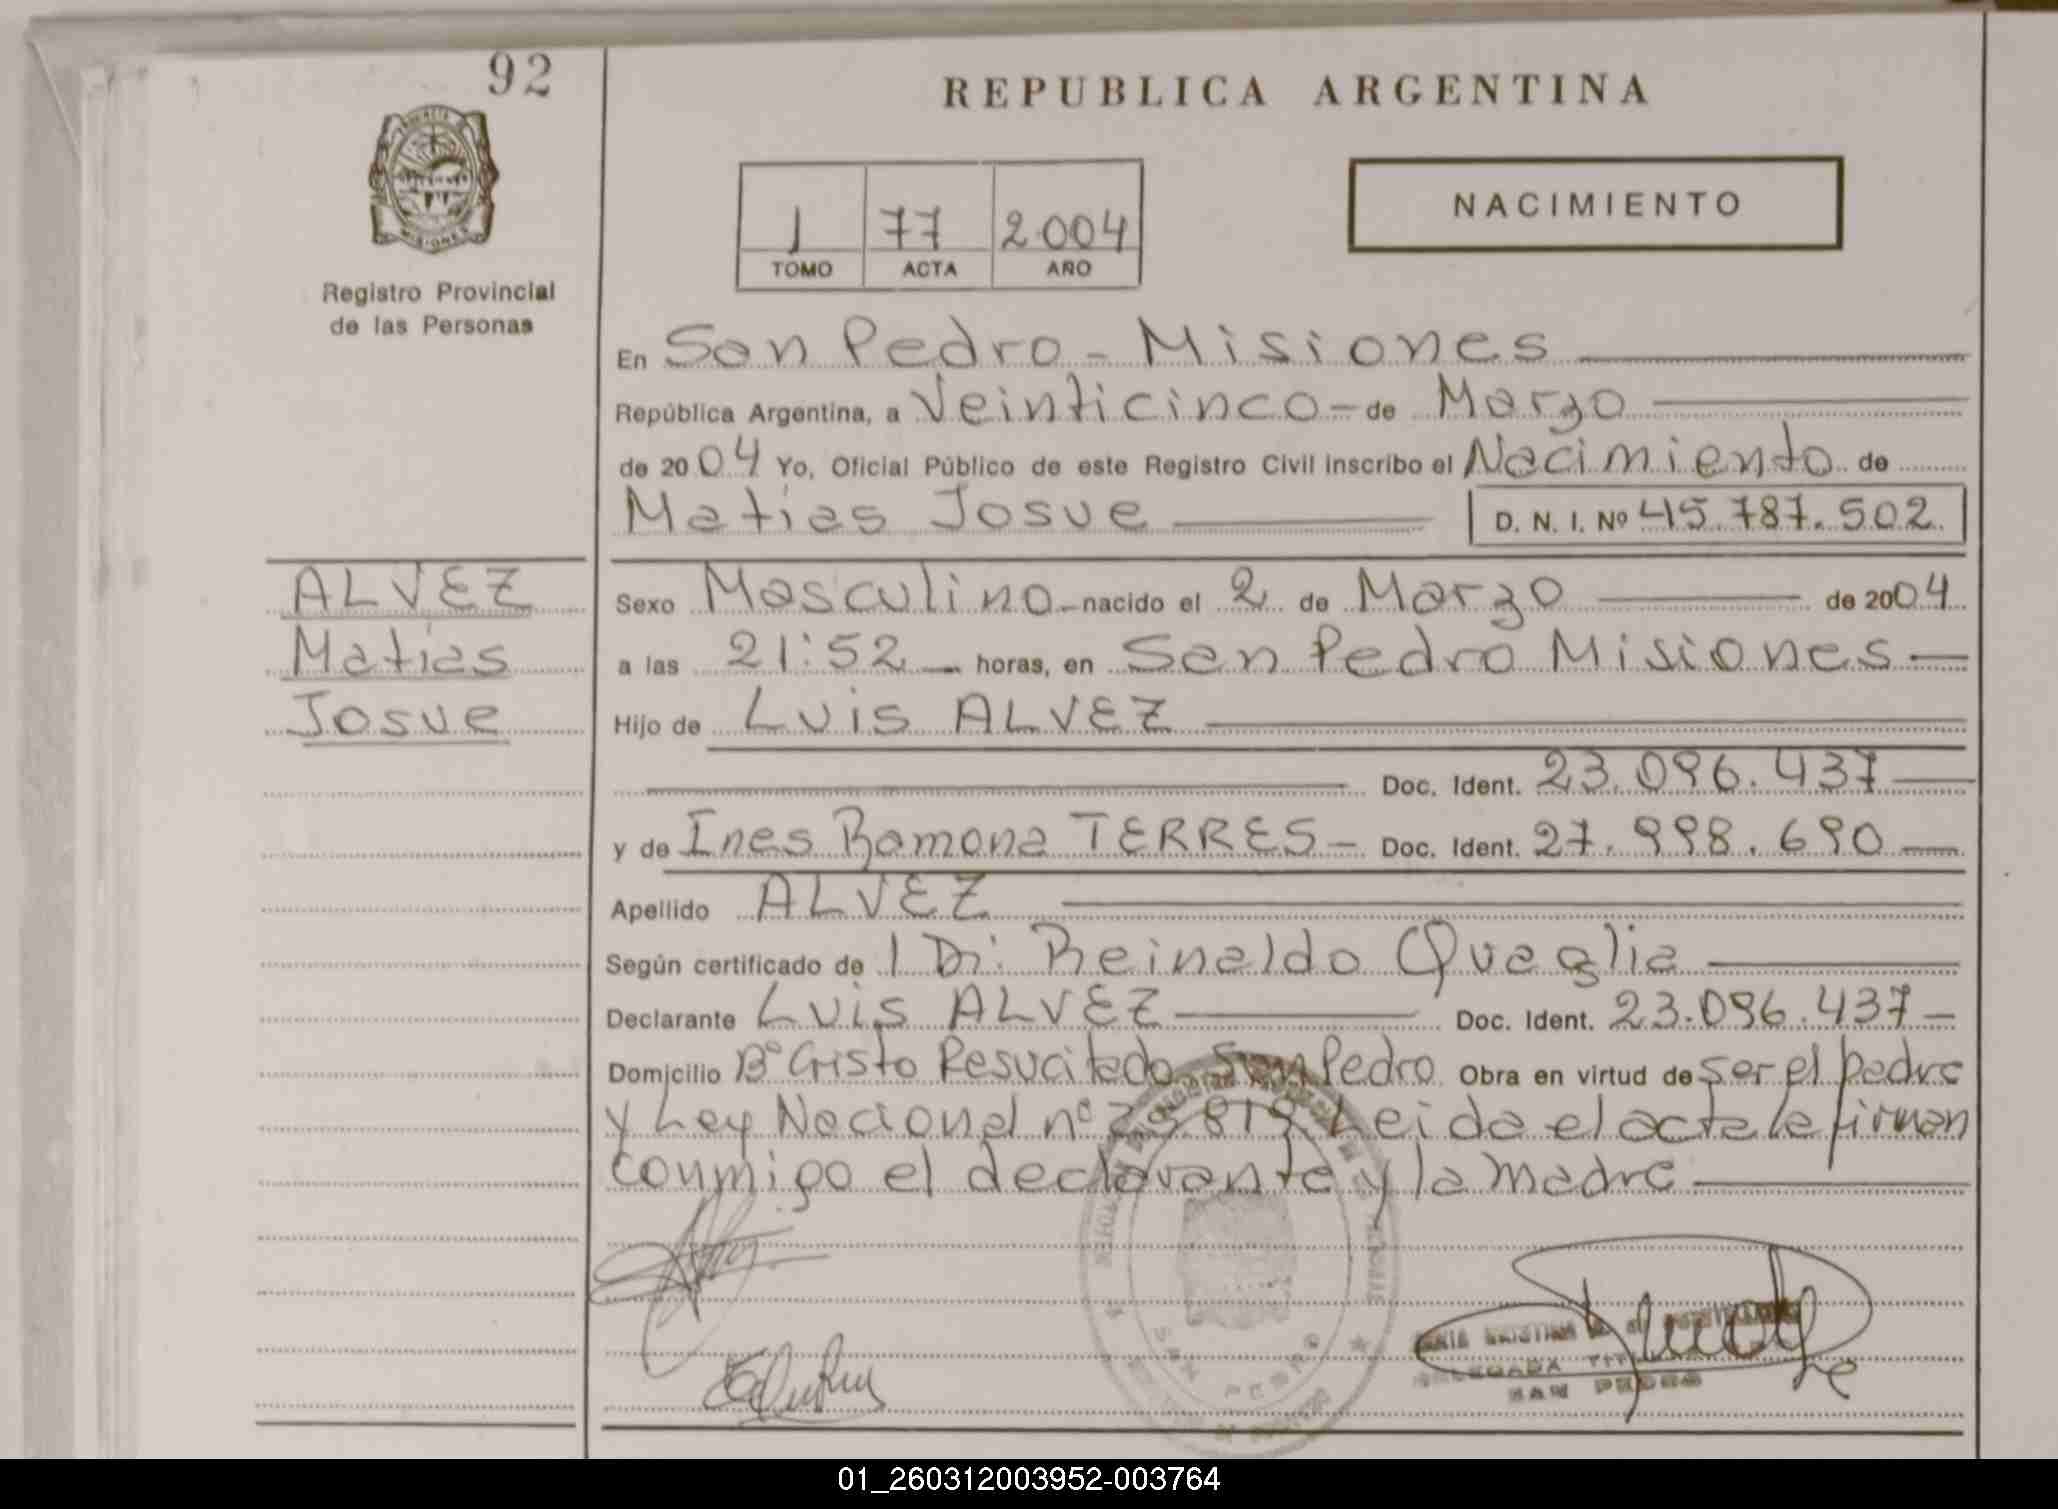 92
REPUBLICA ARGENTINA
NACIMIENTO
1 77 2.004
TOMO ACTA AÑO
Registro Provincial
de las Personas
MISIONES
En San Pedro - Misiones
República Argentina, a Veinticinco - de Marzo
de 2004 Yo, Oficial Público de este Registro Civil inscribo el Nacimiento de
Matias Josue D. N. I. Nº 45.787.502
ALVEZ
Matias
Josue
Sexo Masculino - nacido el 2 de Marzo de 2004
a las 21:52 horas, en San Pedro Misiones
Hijo de Luis ALVEZ
Doc. Ident. 23.096.437
y de Ines Ramona TERRES - Doc. Ident. 27.998.690
Apellido ALVEZ
Según certificado de Reinaldo Quaglia
Declarante Luis ALVEZ Doc. Ident. 23.096.437
Domicilio Bº Cristo Resucitado San Pedro Obra en virtud de ser el padre
y Ley Nacional nº Leida el acta la firman
conmigo el declarante y la madre
SAN PEDRO
SAN PEDRO
01_260312003952-003764